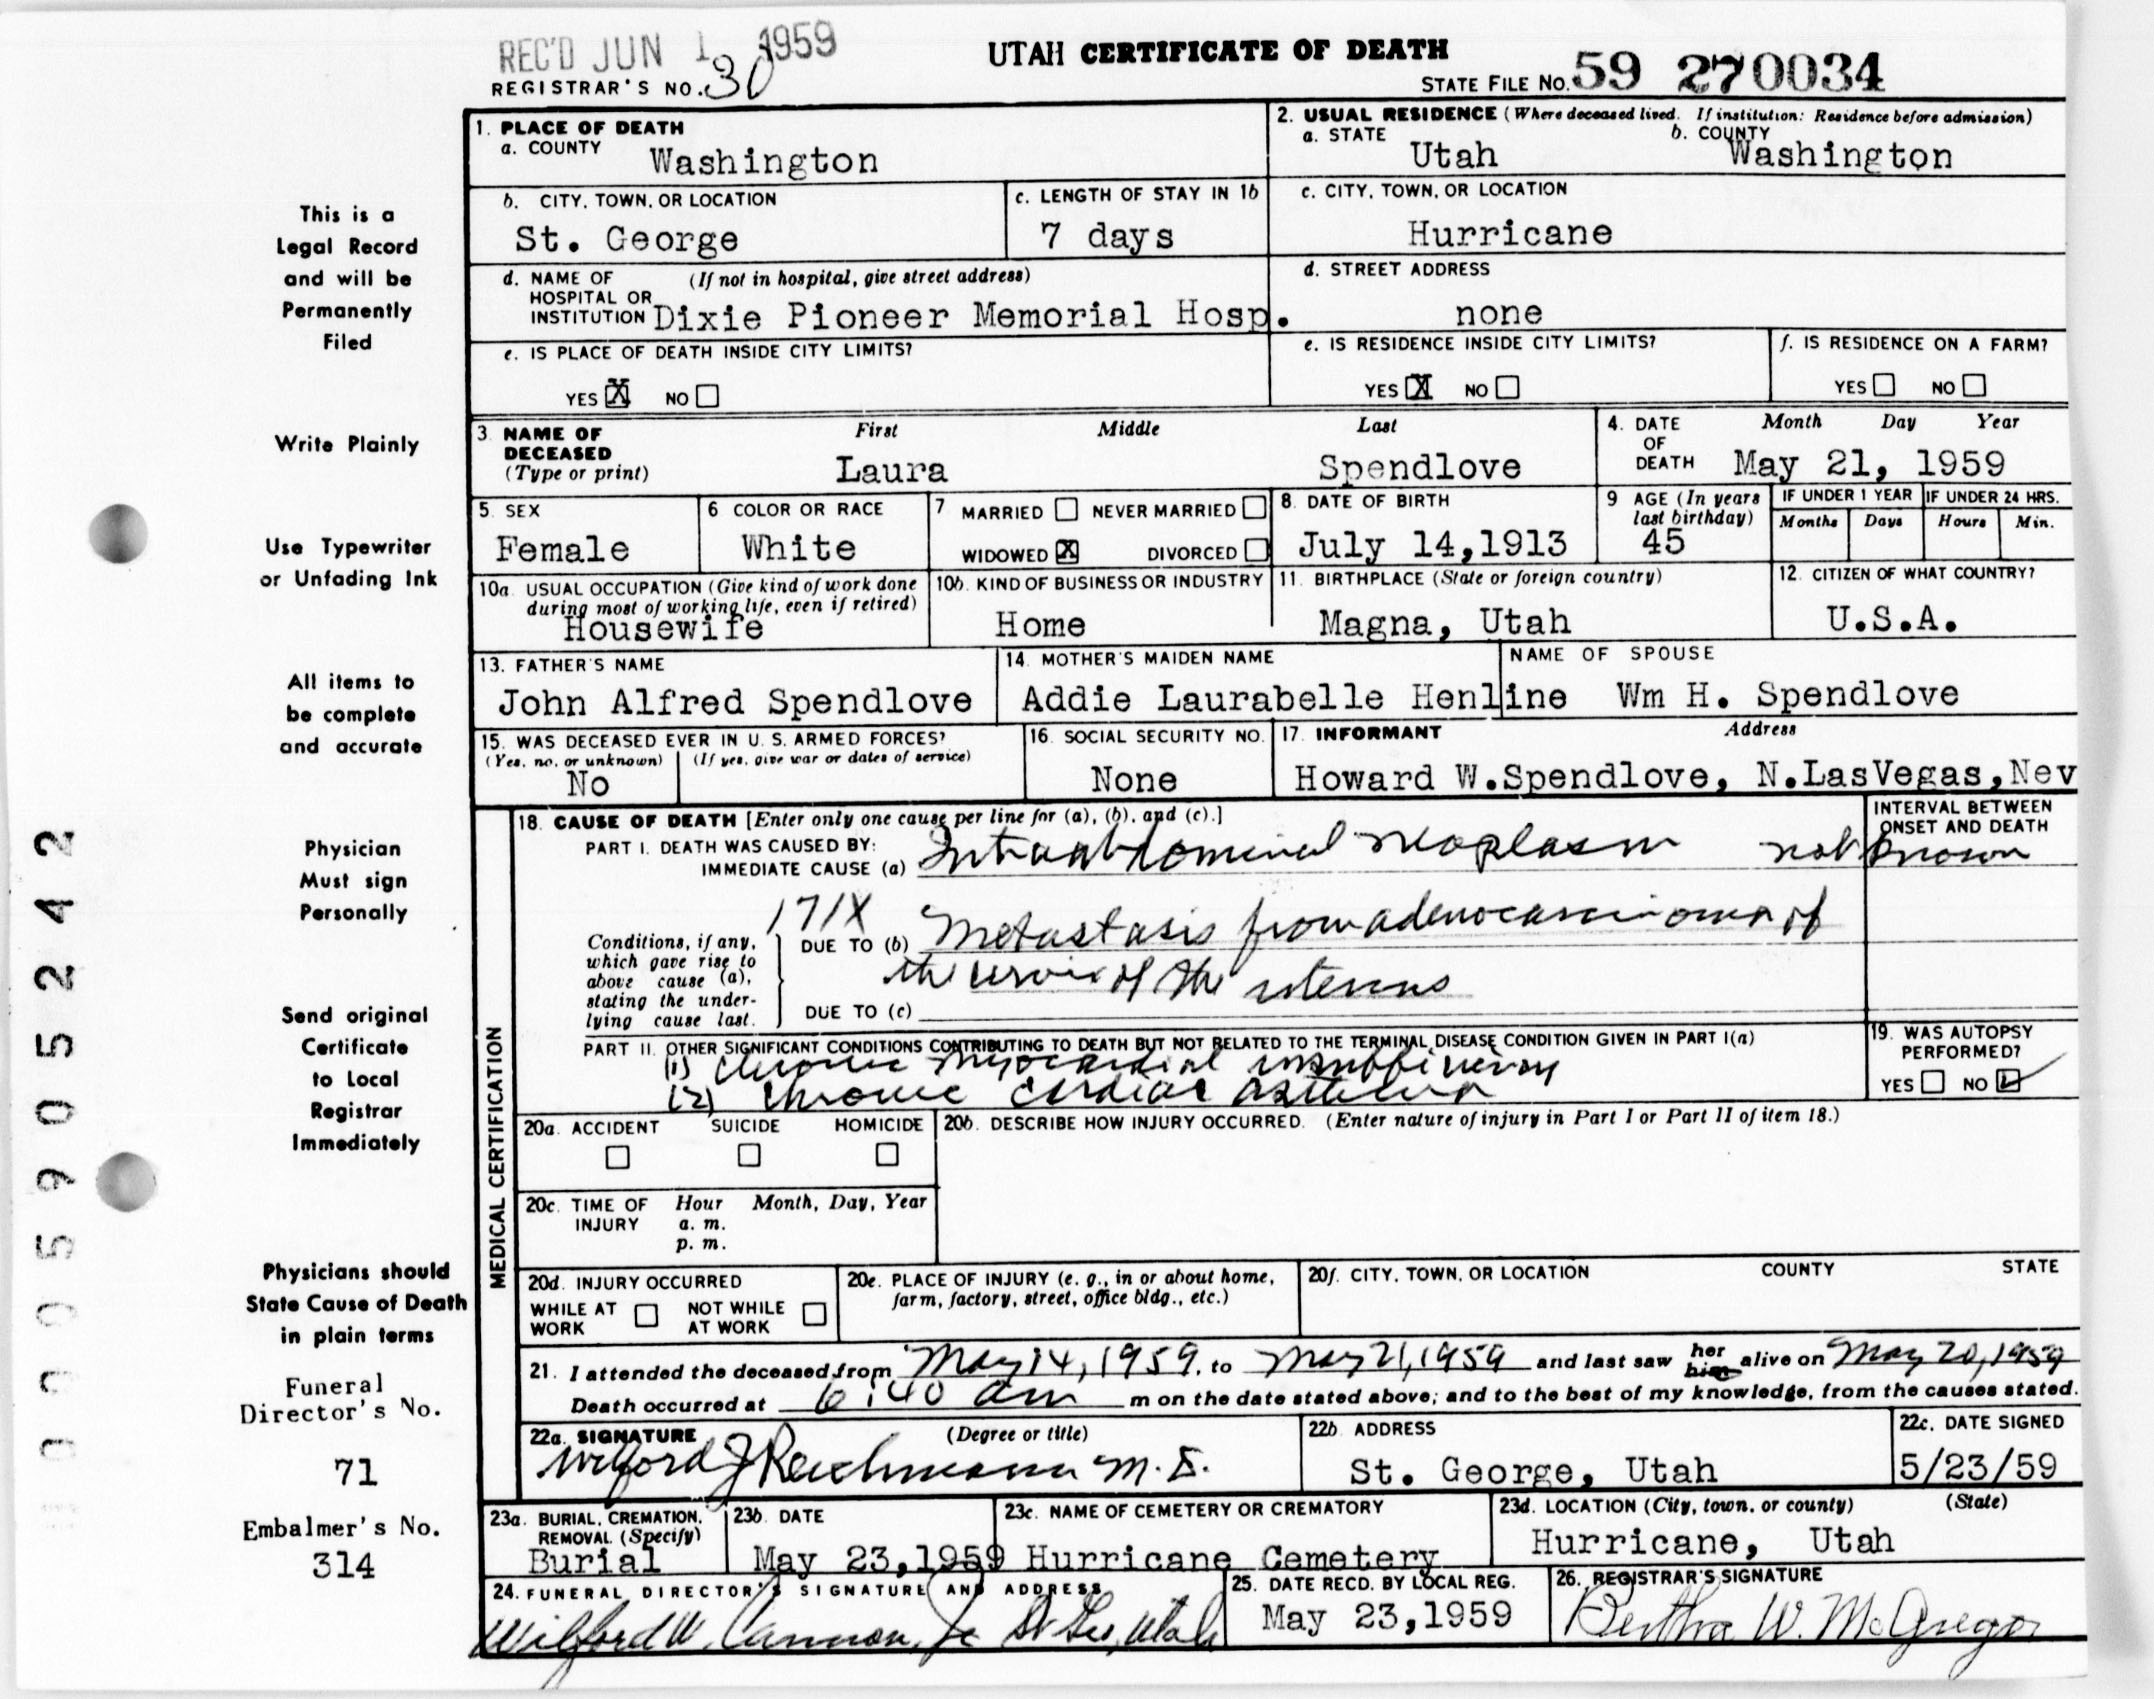 REC'D JUN 1 1959
UTAH CERTIFICATE OF DEATH
REGISTRAR'S NO. 30
STATE FILE NO. 59 270034
1. PLACE OF DEATH
a. COUNTY Washington
2. USUAL RESIDENCE (Where deceased lived. If institution: Residence before admission)
a. STATE Utah b. COUNTY Washington
b. CITY, TOWN, OR LOCATION St. George
c. LENGTH OF STAY IN 1b 7 days
c. CITY, TOWN, OR LOCATION Hurricane
d. NAME OF HOSPITAL OR INSTITUTION (If not in hospital, give street address) Dixie Pioneer Memorial Hosp.
d. STREET ADDRESS none
e. IS PLACE OF DEATH INSIDE CITY LIMITS?
YES X NO
e. IS RESIDENCE INSIDE CITY LIMITS?
YES X NO
f. IS RESIDENCE ON A FARM?
YES NO
3. NAME OF DECEASED (Type or print)
First Middle Last
Laura Spendlove
4. DATE OF DEATH Month Day Year
May 21, 1959
5. SEX Female
6 COLOR OR RACE White
7 MARRIED NEVER MARRIED
WIDOWED X DIVORCED
8. DATE OF BIRTH July 14,1913
9 AGE (In years last birthday) 45
IF UNDER 1 YEAR Months Days
IF UNDER 24 HRS. Hours Min.
10a. USUAL OCCUPATION (Give kind of work done during most of working life, even if retired) Housewife
10b. KIND OF BUSINESS OR INDUSTRY Home
11. BIRTHPLACE (State or foreign country) Magna, Utah
12. CITIZEN OF WHAT COUNTRY? U.S.A.
13. FATHER'S NAME John Alfred Spendlove
14. MOTHER'S MAIDEN NAME Addie Laurabelle Henline
NAME OF SPOUSE Wm H. Spendlove
15. WAS DECEASED EVER IN U. S. ARMED FORCES?
(Yes, no, or unknown) (If yes, give war or dates of service)
No
16. SOCIAL SECURITY NO. None
17. INFORMANT Address
Howard W.Spendlove, N.LasVegas,Nev
18. CAUSE OF DEATH [Enter only one cause per line for (a), (b), and (c).]
INTERVAL BETWEEN ONSET AND DEATH
PART I. DEATH WAS CAUSED BY:
IMMEDIATE CAUSE (a) Intraabdominal neoplasm not known
171X
Conditions, if any, which gave rise to above cause (a), stating the underlying cause last.
DUE TO (b) Metastasis from adenocarcinoma of
the cervix of the uterus
DUE TO (c)
PART II. OTHER SIGNIFICANT CONDITIONS CONTRIBUTING TO DEATH BUT NOT RELATED TO THE TERMINAL DISEASE CONDITION GIVEN IN PART I(a)
(1) chronic myocardial insufficiency
(2) chronic cardiac asthma
19. WAS AUTOPSY PERFORMED?
YES NO ✓
20a. ACCIDENT SUICIDE HOMICIDE
20b. DESCRIBE HOW INJURY OCCURRED. (Enter nature of injury in Part I or Part II of item 18.)
20c. TIME OF INJURY Hour Month, Day, Year
a. m.
p. m.
20d. INJURY OCCURRED
WHILE AT WORK NOT WHILE AT WORK
20e. PLACE OF INJURY (e. g., in or about home, farm, factory, street, office bldg., etc.)
20f. CITY, TOWN, OR LOCATION COUNTY STATE
21. I attended the deceased from May 14, 1959, to May 21, 1959 and last saw her him alive on May 20, 1959
Death occurred at 6:40 am m on the date stated above; and to the best of my knowledge, from the causes stated.
22a. SIGNATURE (Degree or title)
Wilford J Reichmann M.D.
22b. ADDRESS St. George, Utah
22c. DATE SIGNED 5/23/59
23a. BURIAL, CREMATION, REMOVAL (Specify) Burial
23b. DATE May 23,1959
23c. NAME OF CEMETERY OR CREMATORY Hurricane Cemetery
23d. LOCATION (City, town, or county) (State)
Hurricane, Utah
24. FUNERAL DIRECTOR'S SIGNATURE AND ADDRESS
Wilford W. Cannon, Jr St Geo, Utah
25. DATE RECD. BY LOCAL REG. May 23,1959
26. REGISTRAR'S SIGNATURE
Bertha W. McGregor
MEDICAL CERTIFICATION
This is a
Legal Record
and will be
Permanently
Filed
Write Plainly
Use Typewriter
or Unfading Ink
All items to
be complete
and accurate
Physician
Must sign
Personally
Send original
Certificate
to Local
Registrar
Immediately
Physicians should
State Cause of Death
in plain terms
Funeral
Director's No.
71
Embalmer's No.
314